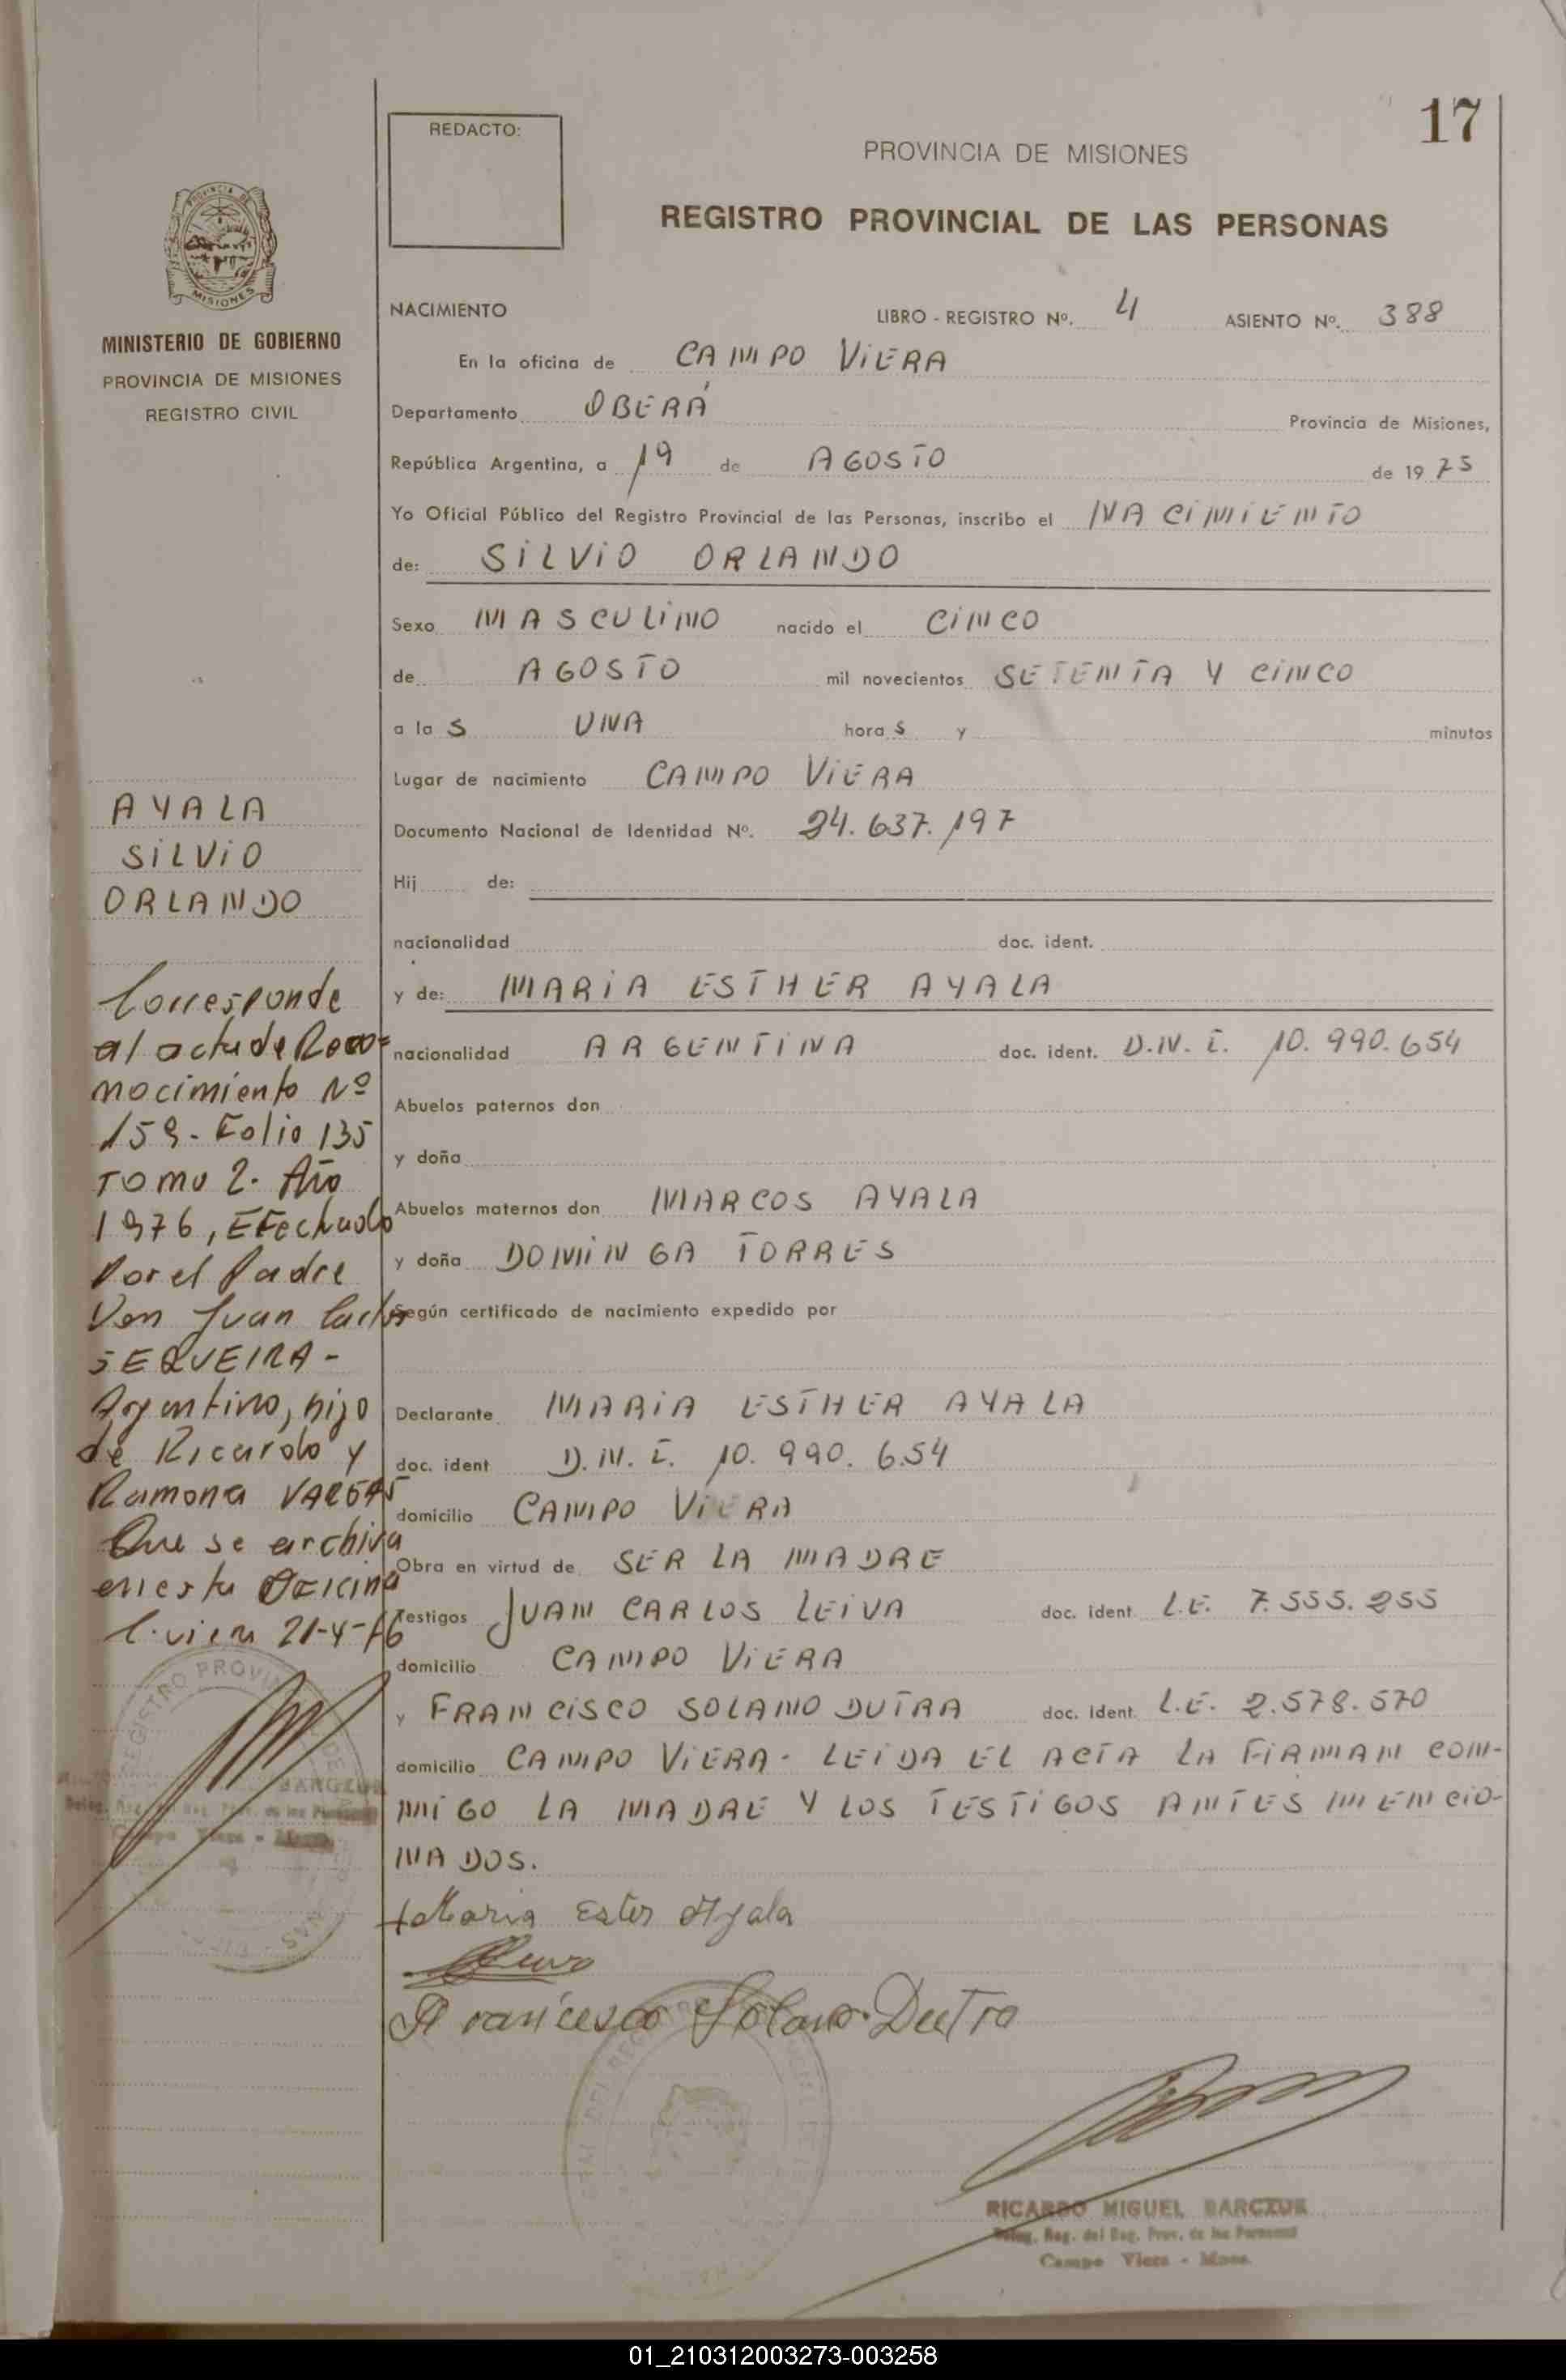 17
REDACTO:
PROVINCIA DE MISIONES
REGISTRO PROVINCIAL DE LAS PERSONAS
PROVINCIA DE
MISIONES
MINISTERIO DE GOBIERNO
PROVINCIA DE MISIONES
REGISTRO CIVIL
NACIMIENTO LIBRO - REGISTRO Nº. 4 ASIENTO Nº. 388
En la oficina de CAMPO VIERA
Departamento OBERÁ Provincia de Misiones,
República Argentina, a 19 de AGOSTO de 1975
Yo Oficial Público del Registro Provincial de las Personas, inscribo el NACIMIENTO
de: SILVIO ORLANDO
Sexo MASCULINO nacido el CINCO
de AGOSTO mil novecientos SETENTA Y CINCO
a la S UNA hora S y minutos
Lugar de nacimiento CAMPO VIERA
Documento Nacional de Identidad Nº. 24.637.197
Hij de:
nacionalidad doc. ident.
y de: MARIA ESTHER AYALA
nacionalidad ARGENTINA doc. ident. D.N.I. 10.990.654
Abuelos paternos don
y doña
Abuelos maternos don MARCOS AYALA
y doña DOMINGA TORRES
Según certificado de nacimiento expedido por
Declarante MARIA ESTHER AYALA
doc. ident D.N.I. 10.990.654
domicilio CAMPO VIERA
Obra en virtud de SER LA MADRE
Testigos JUAN CARLOS LEIVA doc. ident L.E. 7.555.255
domicilio CAMPO VIERA
y FRANCISCO SOLANO DUTRA doc. ident. L.E. 2.578.570
domicilio CAMPO VIERA - LEIDA EL ACTA LA FIRMAN CON-
MIGO LA MADRE Y LOS TESTIGOS ANTES MENCIO-
NADOS.
Maria Ester Ayala
Francisco Solano Dutra
RICARDO MIGUEL BARCZUK
Deleg. Reg. del Reg. Prov. de las Personas
Campo Viera - Mnes.
AYALA
SILVIO
ORLANDO
Corresponde
al acta de Reco=
nocimiento Nº
159 - Folio 135
Tomo 2. Año
1976, Efectuado
Por el Padre
Don Juan Carlos
SEQUEIRA -
Argentino, hijo
de Ricardo y
Ramona VARGAS
Que se archiva
en esta Oficina
C. viera 21-4-76
REGISTRO PROVIN
BARCZUK
Campo Viera - Mnes.
01_210312003273-003258